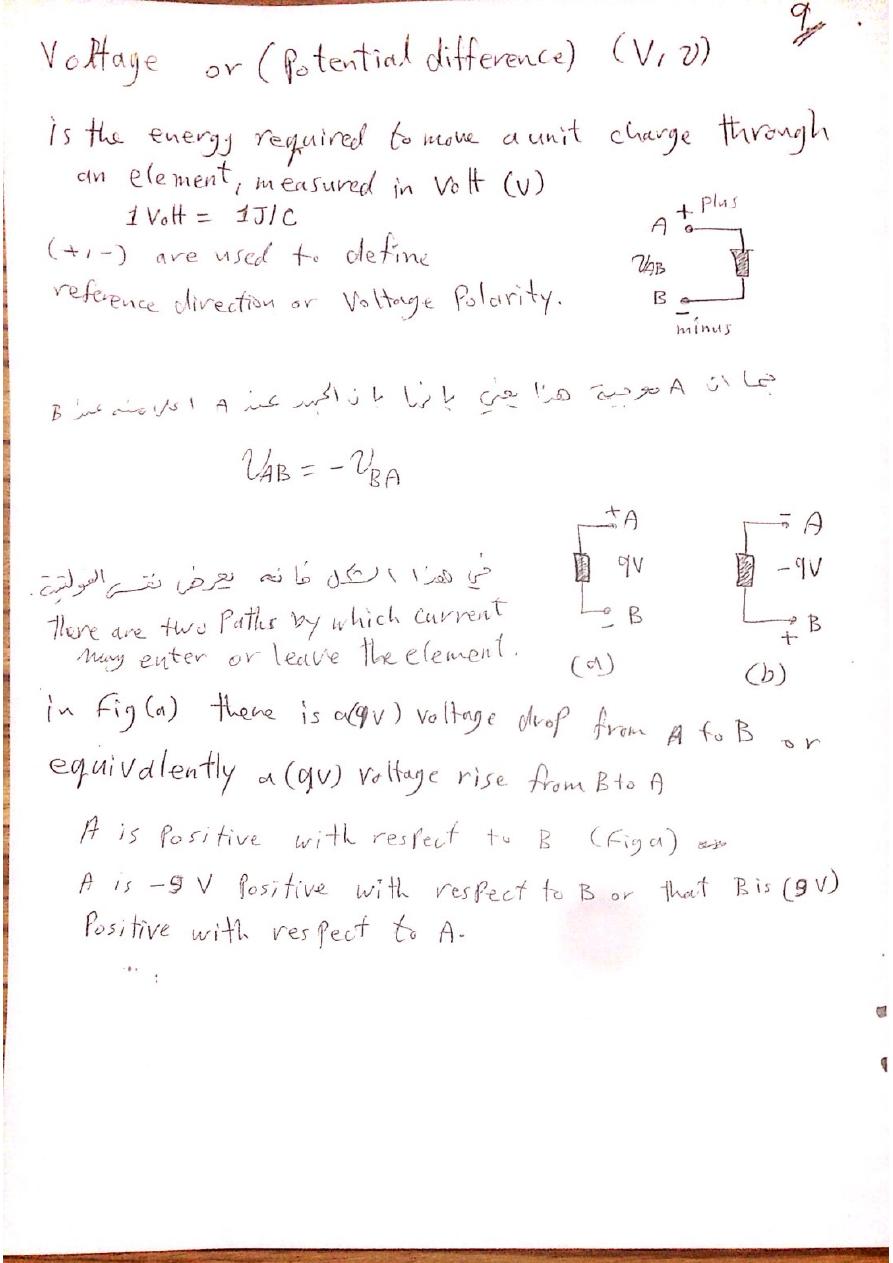 9
Voltage or (Potential difference) (V, v)
is the energy required to move a unit charge through
an element, measured in Volt (V)
1 Volt = 1J/C
(+,-) are used to define
reference direction or Voltage Polarity.
+ Plus
A
VAB
B
-
minus
بما ان A موجبة هذا يعني باننا بان الجهد عند A اعلا منه عند B
VAB = - VBA
+ A
9V
- B
(a)
- A
-9V
B
+
(b)
في هذا الشكل فانه يعرض نفس الفولتية.
There are two Paths by which current
may enter or leave the element.
in Fig (a) there is a(9v) voltage drop from A to B or
equivalently a (9v) voltage rise from B to A
A is Positive with respect to B (Fig a)
A is -9 V Positive with respect to B or that B is (9 V)
Positive with respect to A.